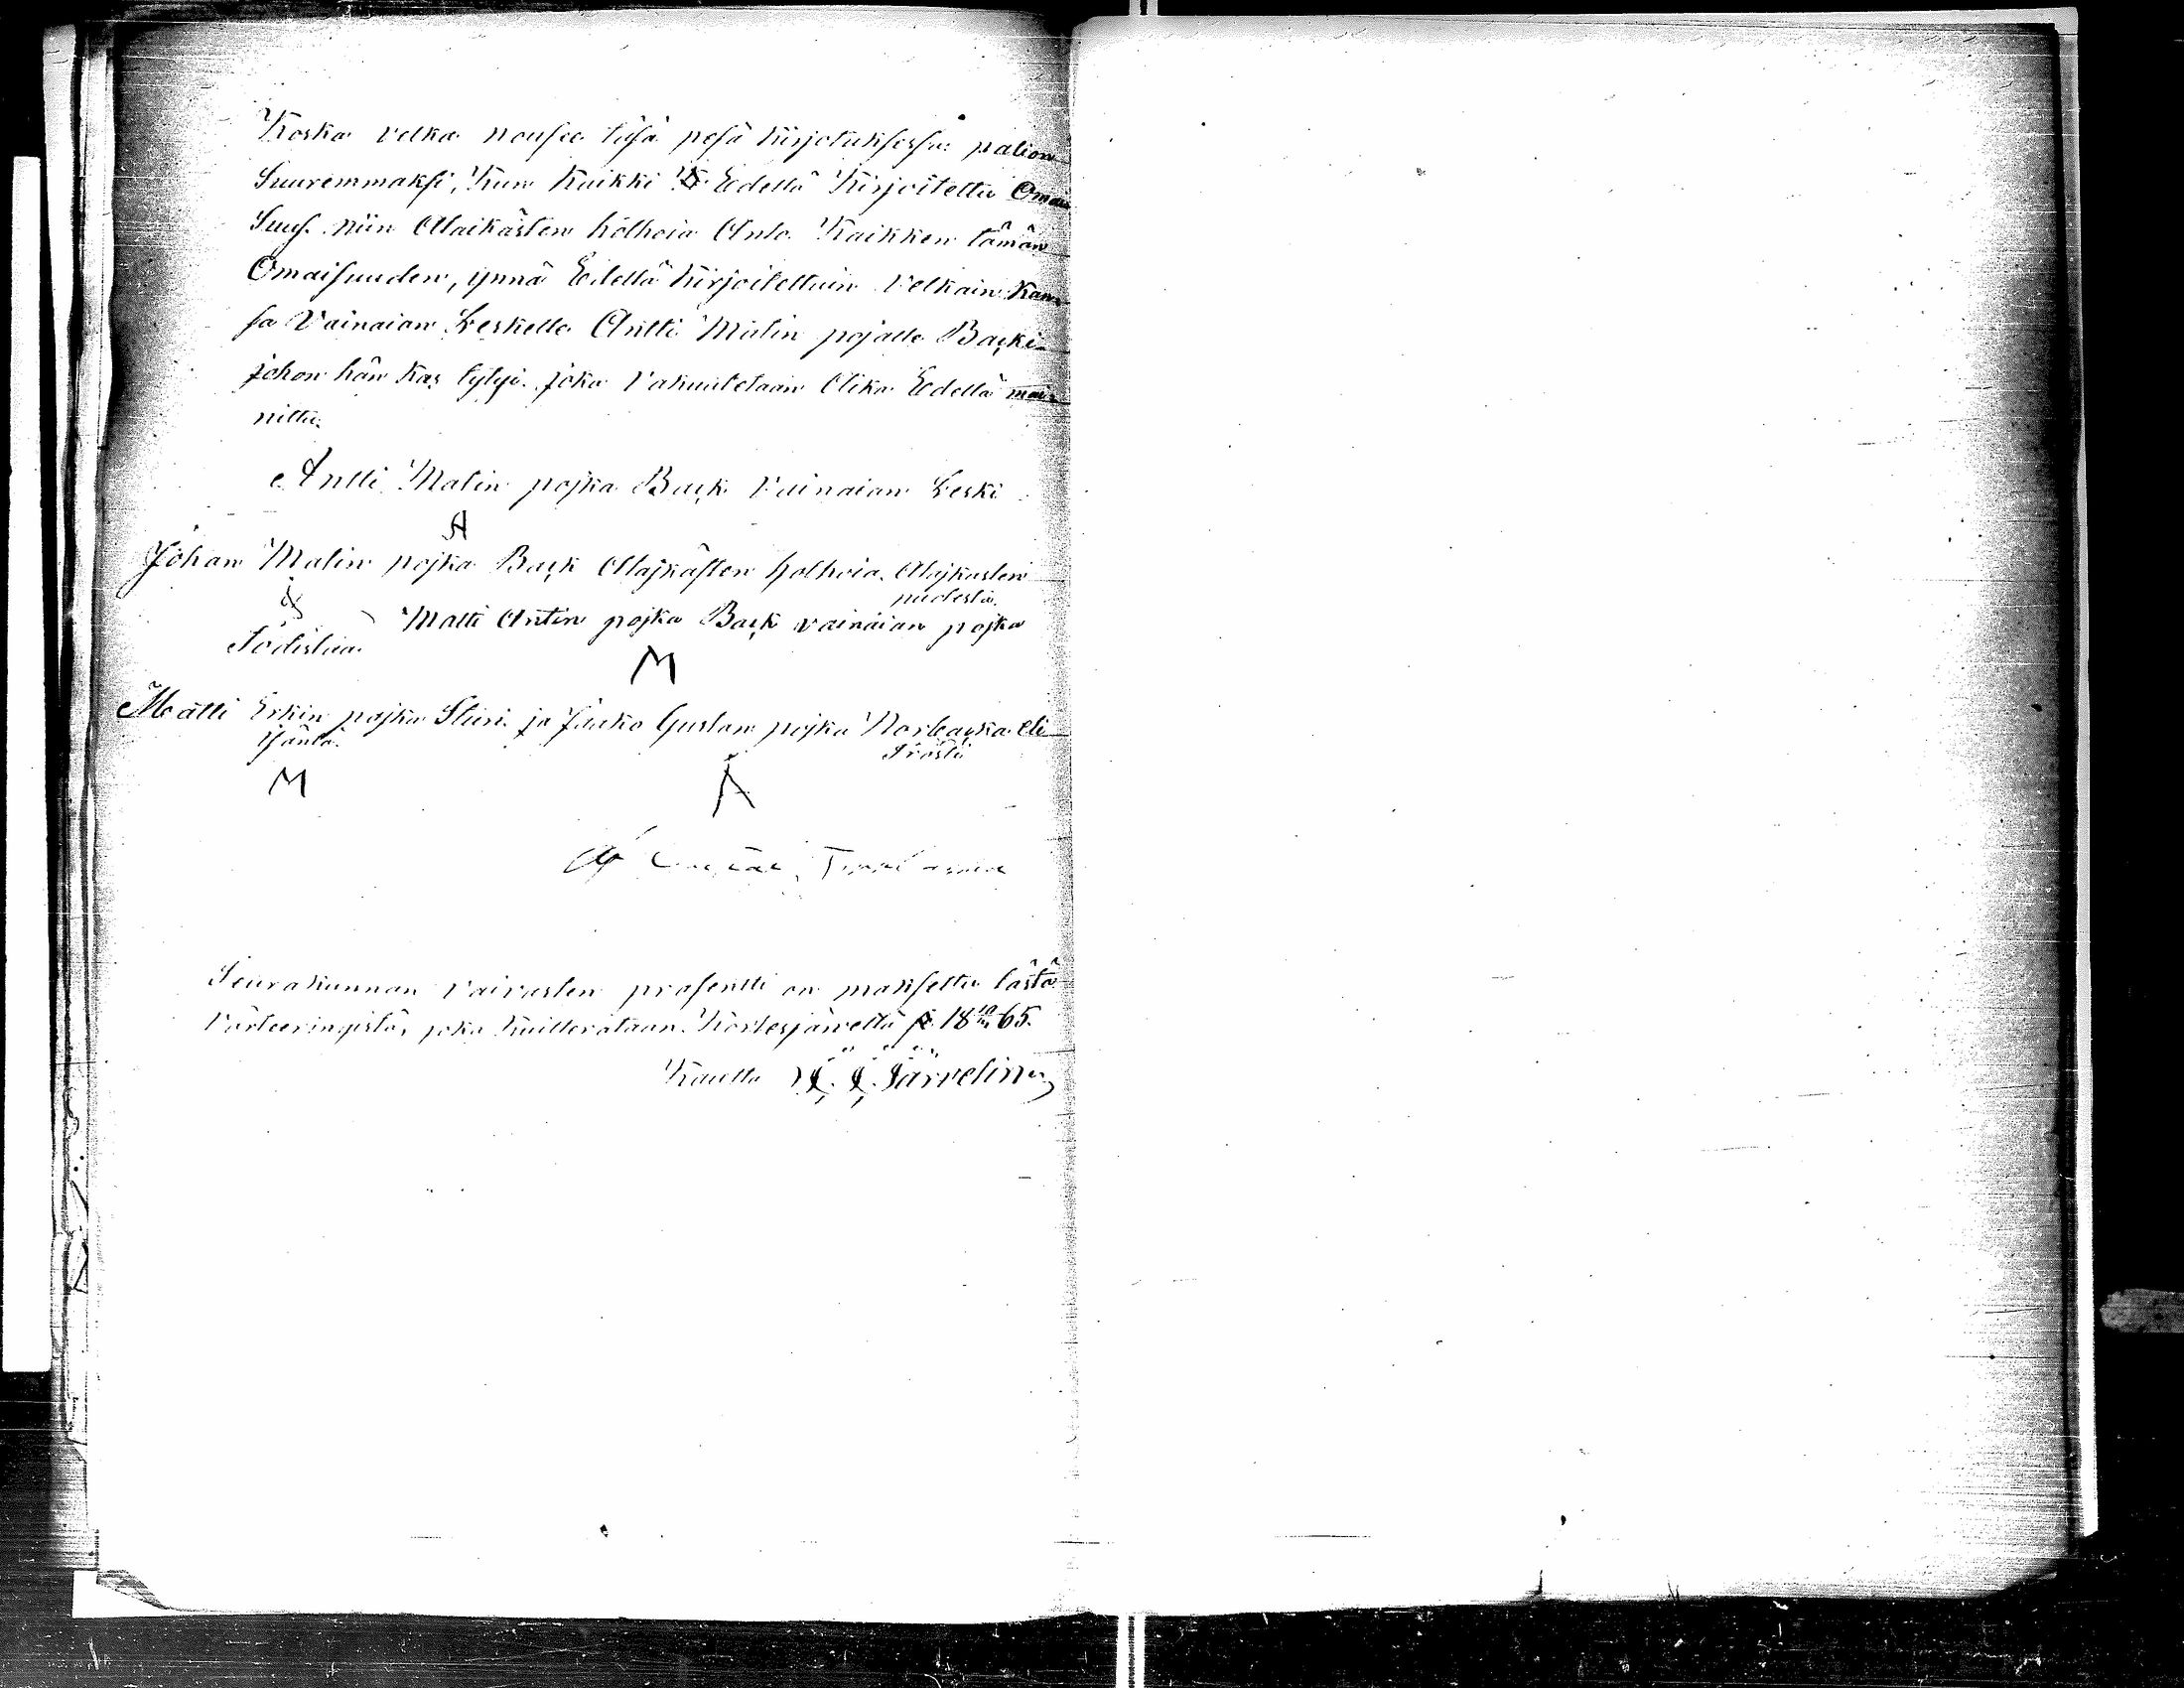 Koska velka nousee täsä pesä kirjotuksessa palion
Suuremmaksi, Kun Kaikki Edellä Kirjoitettu Omai
Suus. niin Alaikästen hólhoia Anto Kaikken tämän
Omaisuuden, ynnä Edellä kirjoitettuin velkain Kan-
sa Vainaian Leskelle Antti Matin pojalle Backi-
johon hän Kas tytyi. joka Vakuutetaan Edellä mai-
nittu.
Antti Matin pojka Back Vainaian Leski
A
Johan Matin pojka Back Alajkästen holhoia. Alajkasten
puolesta.
Matti Antin pojka Back vainaian pojka
Todistaa.
M
Matti Erkin pojka Stiiri ja Jaako Gustaw pojka Norbacka eli
M
Seurakunnan Vaivasten prosentti on maksettu tästä
Värteeringistä, joka kuitterataan. Kortesjärveltä 18 65.
Kautta Järvelin